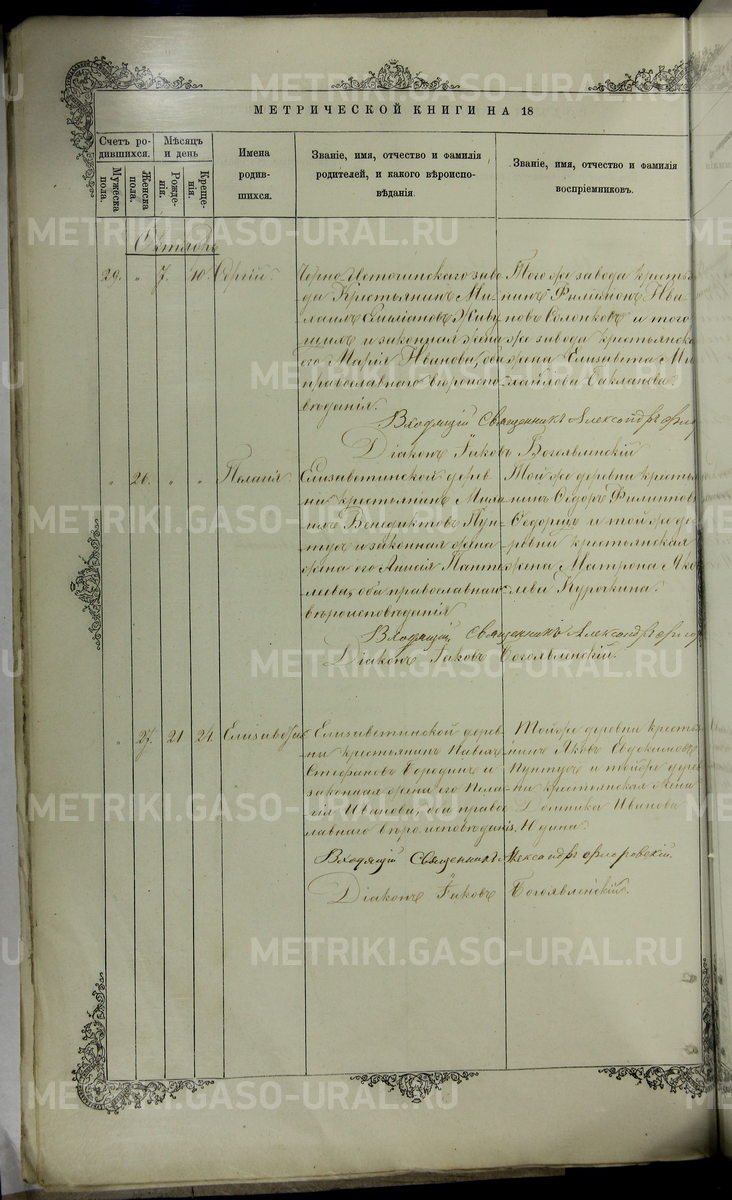 МЕТРИЧЕСКОЙ КНИГИ НА 18
Счетъ ро-
дившихся.
Мужеска
пола.
Женска
пола.
Мѣсяцъ
и день
Рожде-
нія.
Креще-
нія.
Имена
родив-
шихся.
Званіе, имя, отчество и фамилія
родителей, и какого вѣроиспо-
вѣданія.
Званіе, имя, отчество и фамилія
воспріемниковъ.
Октябрь
29. " 7. 10. Сергій.
Черно-Источинскаго заво
да Крестьянинъ Ми-
хаилъ
и законная жена
его Марія Иванова, оба
православнаго вѣроиспо-
вѣданія.
Того же завода кресть
янинъ Филимонъ Ива
новъ Солонковъ и того
же завода крестьянск
жена Елизавета Ми
хайлова Бакланова.
Входящій Священникъ Александръ
Діаконъ Іаковъ Богоявленскій
" 26. " " Пелагія
Елизаветинской дерев
ни крестьянинъ
Венедиктовъ Пун-
тусъ и законная жена
его Анисія
оба православнаго
вѣроисповѣданія
Той же деревни кресть
янинъ Ѳедоръ Филиппов
и той же де
ревни крестьянская
жена Матрона Яко
влева Курочкина.
Входящій Священникъ Александръ
Діаконъ Іаковъ Богоявленскій.
" 27. 21 24. Елизавета
Елизаветинской дерев
ни крестьянинъ Павелъ
Стефановъ Бородинъ и
законная жена его Пела
гія Иванова, оба право
славнаго вѣроисповѣданія.
Той же деревни кресть
янинъ Яковъ Евдокимовъ
Пунтусъ и той же дерев
ни крестьянская жена
Домника Иванова
Входящій Священникъ Александръ Флоровскій.
Діаконъ Іаковъ Богоявленскій.
METRIKI.GASO-URAL.RU